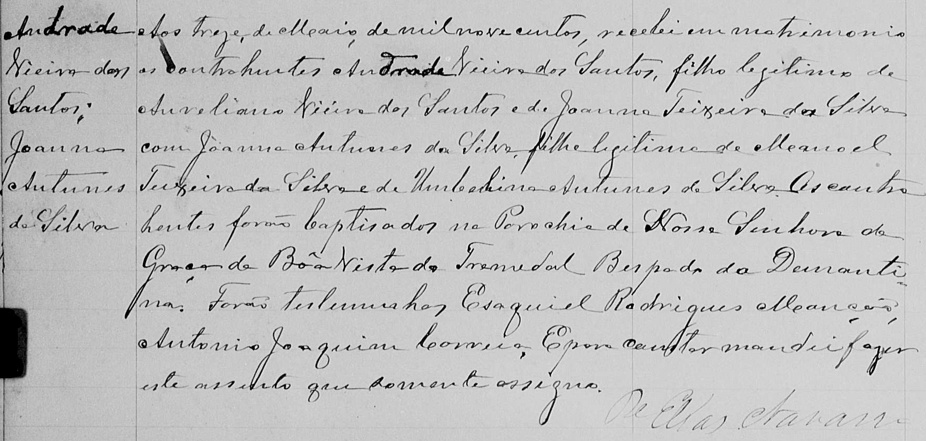 Andrade
Vieira dos
Santos;
Joanna
Antunes
da Silva
Aos treze, de Maio, de mil nove centos, recebi em matrimonio
os contrahentes Andrade Vieira dos Santos, filho legitimo de
Aureliano Vieira dos Santos e de Joanna Teixeira da Silva
com Joanna Antunes da Silva, filha legitima de Manoel
Teixeira da Silva e de Umbelina Antunes da Silva. Os contra
hentes forão baptisados na Parochia de Nossa Senhora da
Graça da Bôa Vista do Tremedal Bespado da Demanti-
na. Forão testemunhas Esaquiel Rodrigues
Antonio Joaquim Correia, E para constar mandei fazer
este assento que somente assigno.
Pe